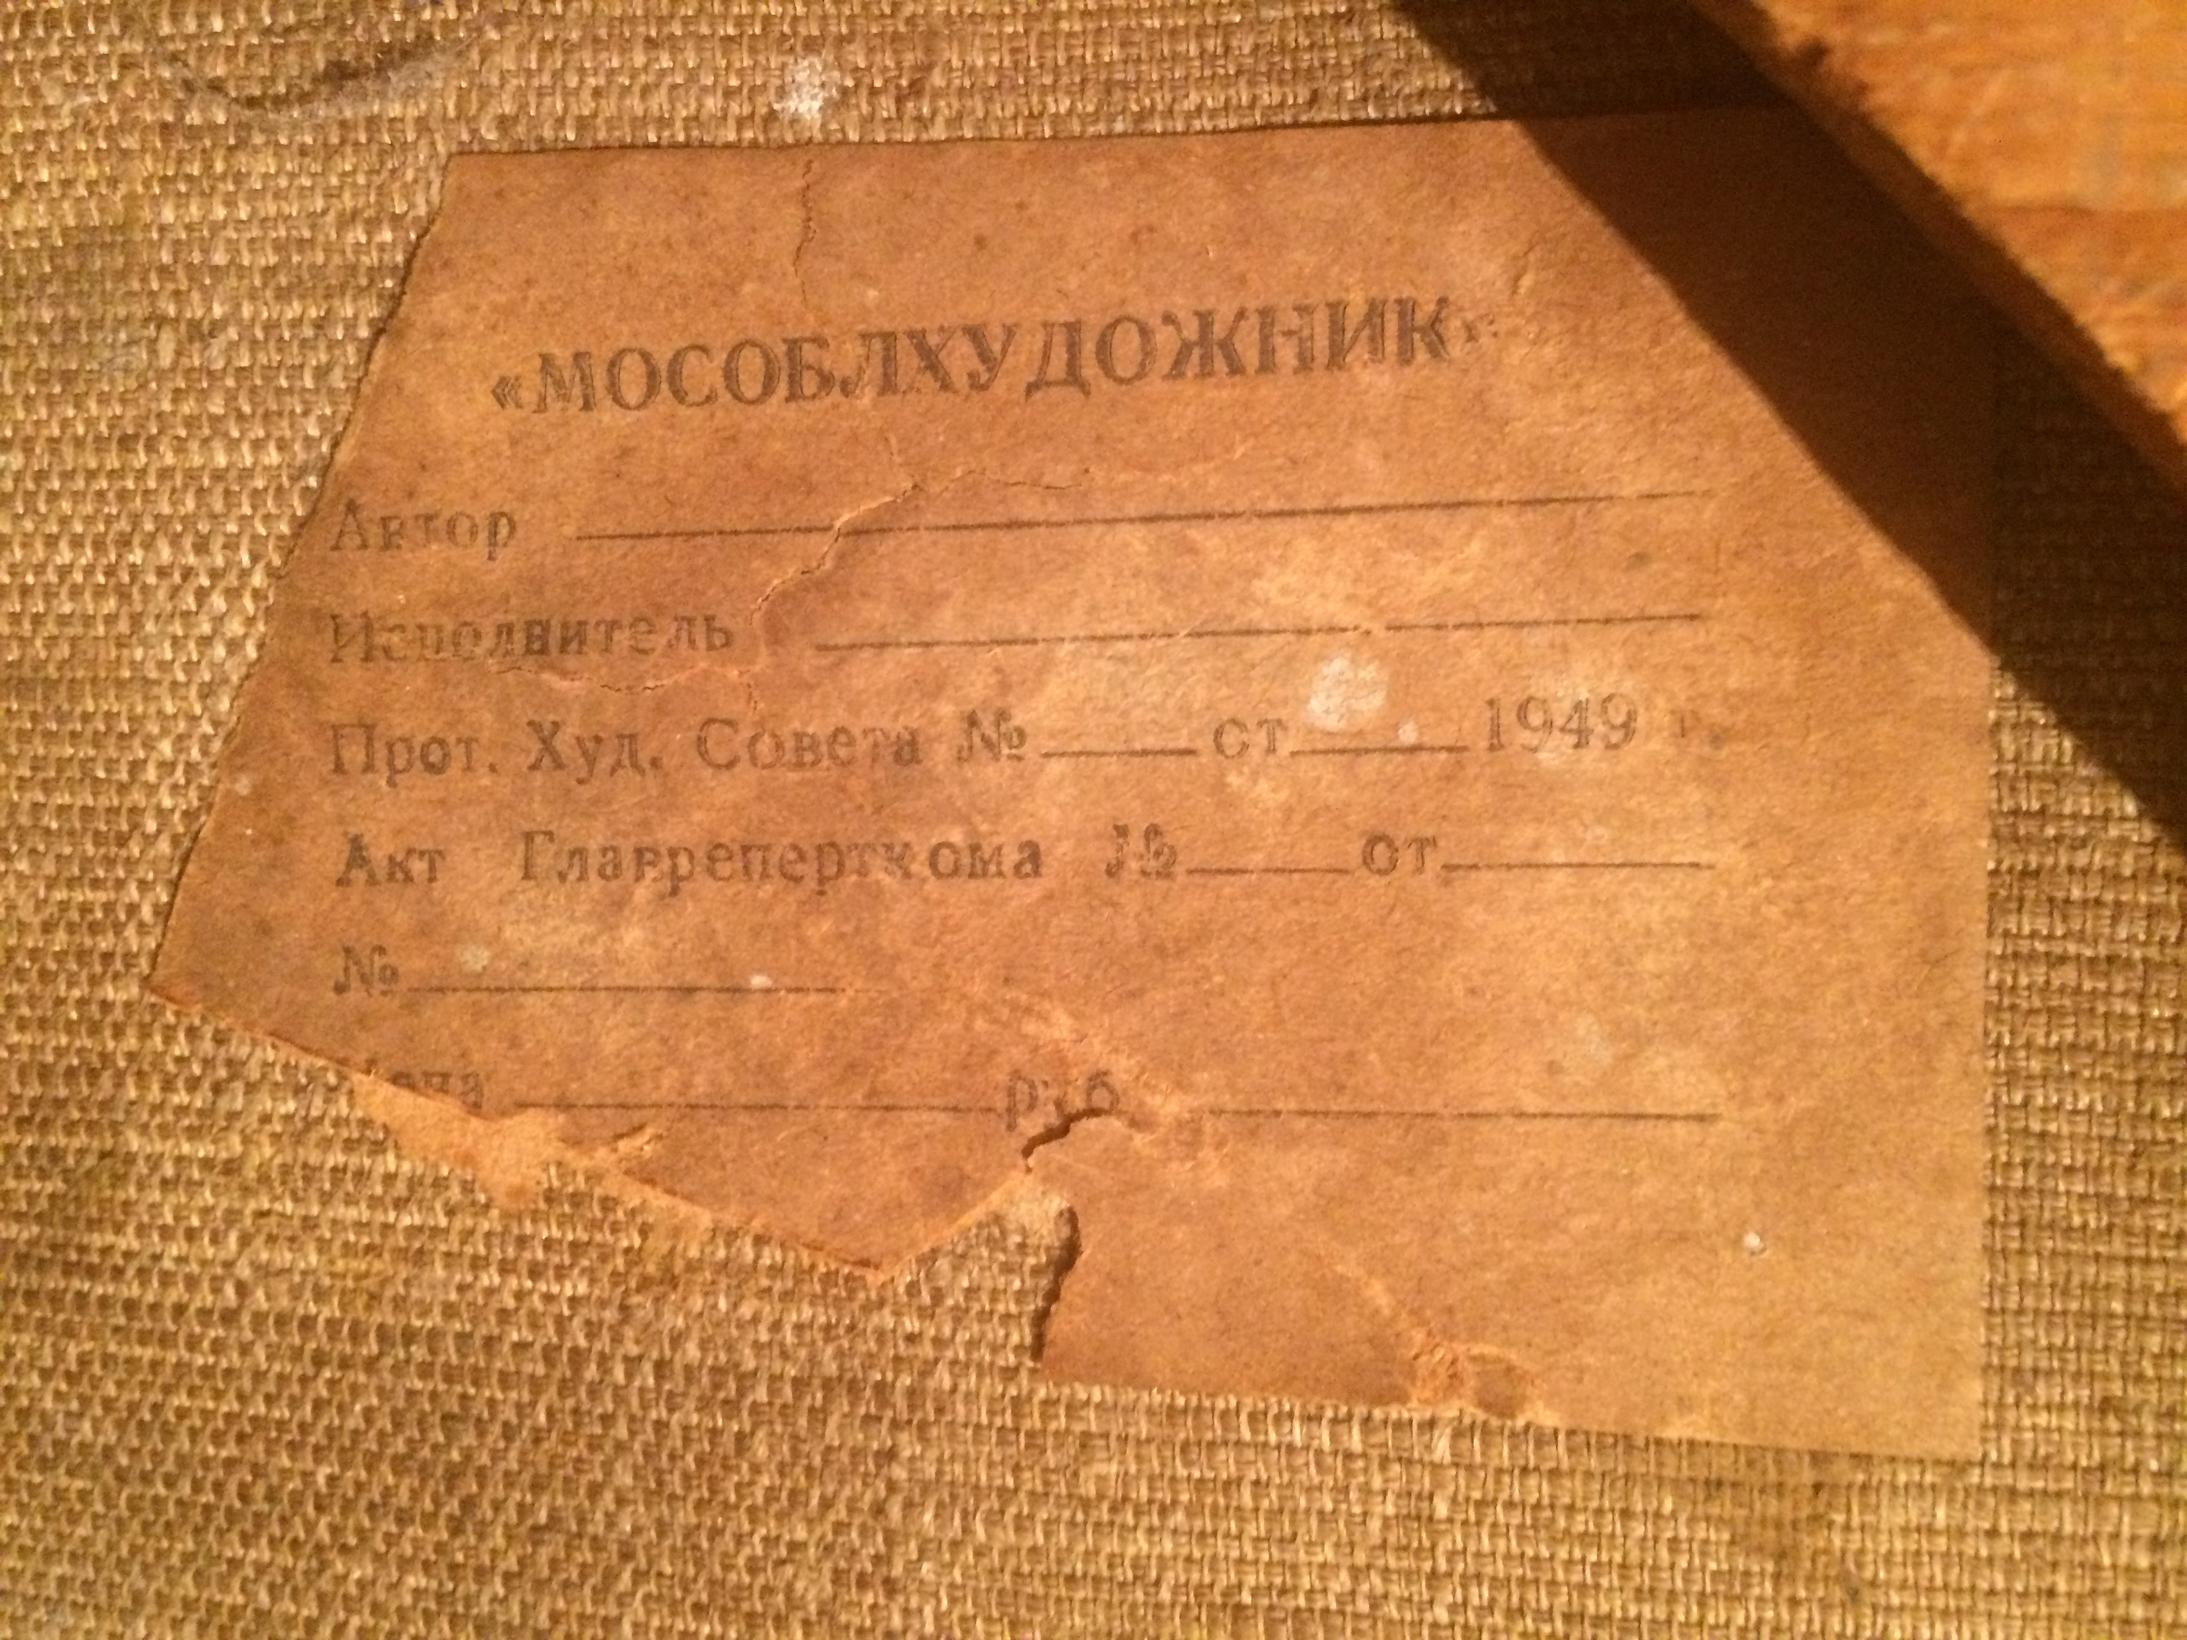 «МОСОБЛХУДОЖНИК»
Автор
Исполнитель
Прот. Худ. Совета № от 1949 г.
Акт Главреперткома № от
№
руб